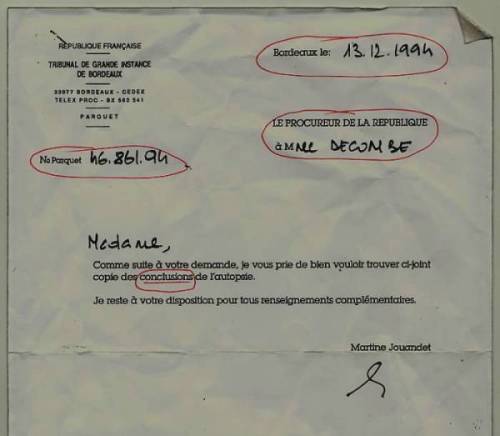 RÉPUBLIQUE FRANÇAISE
TRIBUNAL DE GRANDE INSTANCE
DE BORDEAUX
33077 BORDEAUX - CEDEX
TELEX PROC - BX 562 541
PARQUET
No Parquet 46.861.94
Bordeaux le: 13.12.1994
LE PROCUREUR DE LA REPUBLIQUE
à Mme DECOMBE
Madame,
Comme suite à votre demande, je vous prie de bien vouloir trouver ci-joint
copie des conclusions de l'autopsie.
Je reste à votre disposition pour tous renseignements complémentaires.
Martine Jouandet